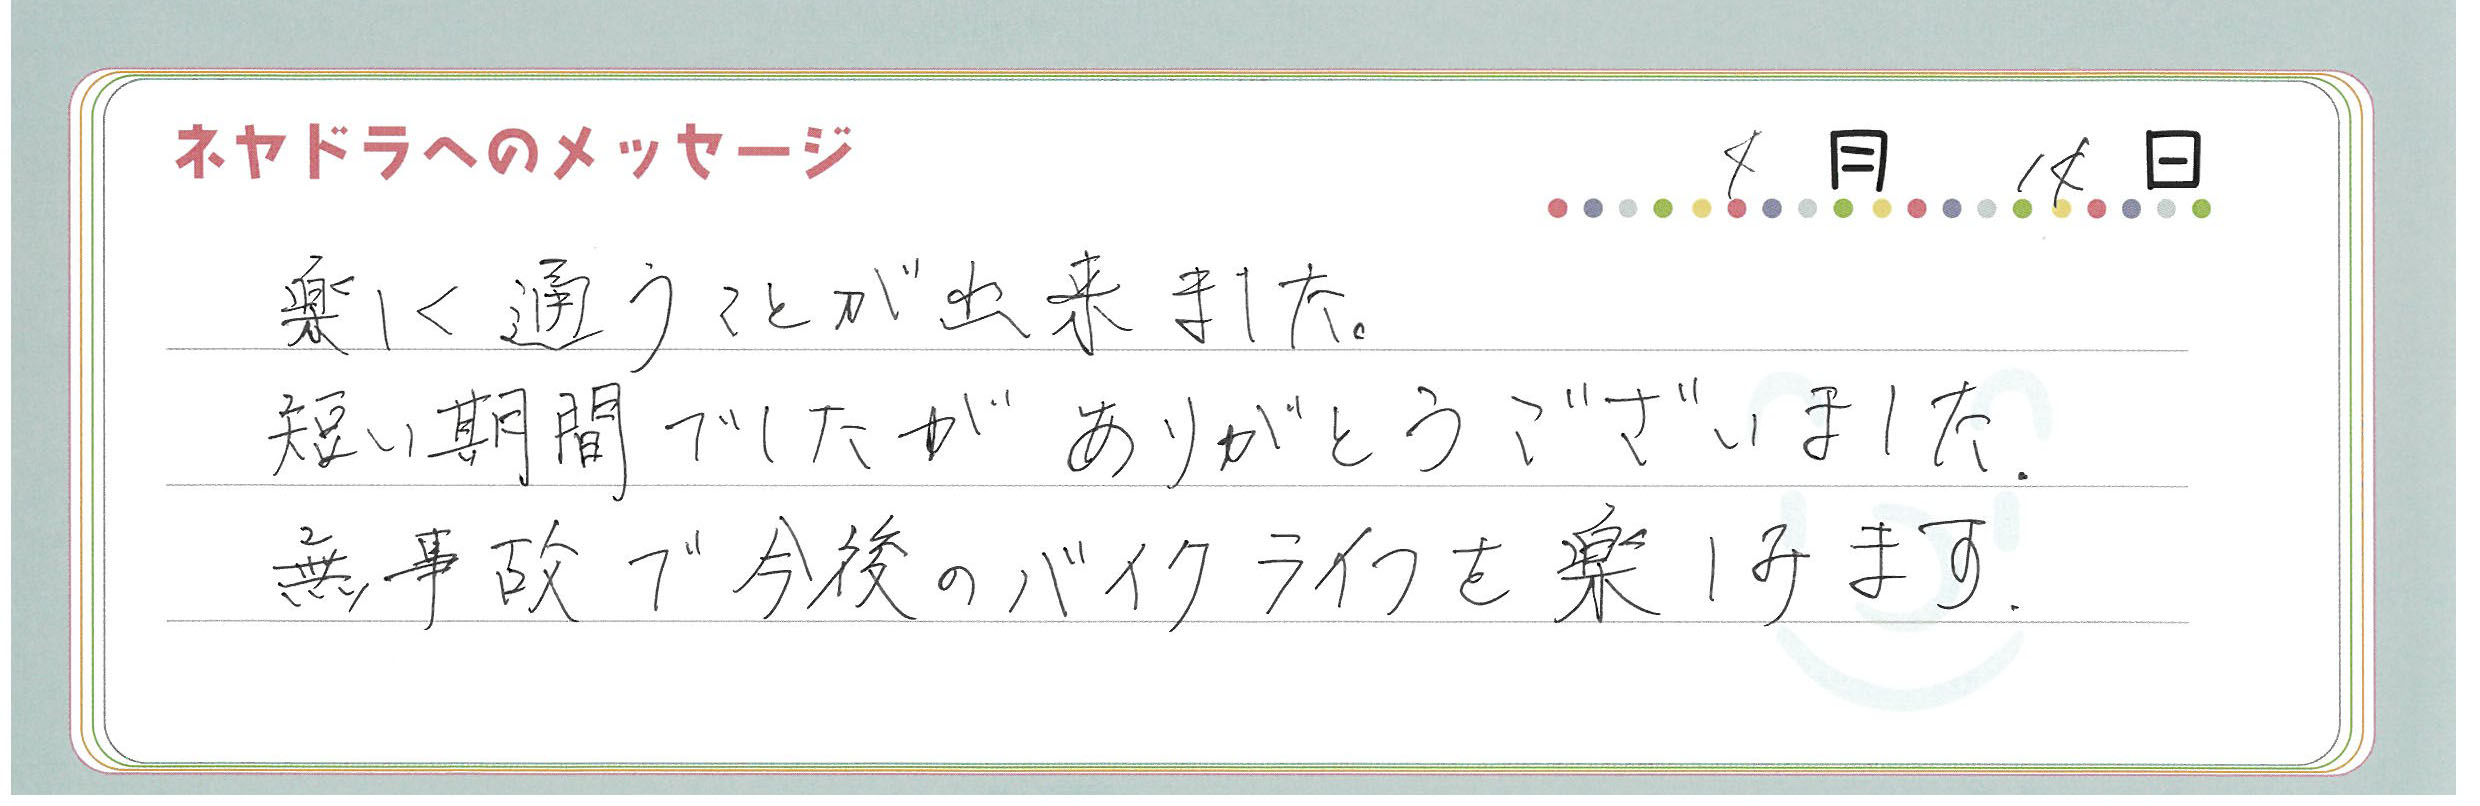 ネヤドラへのメッセージ
4月14日
楽しく通うことが出来ました。
短い期間でしたがありがとうございました.
無事故で今後のバイクライフを楽しみます.